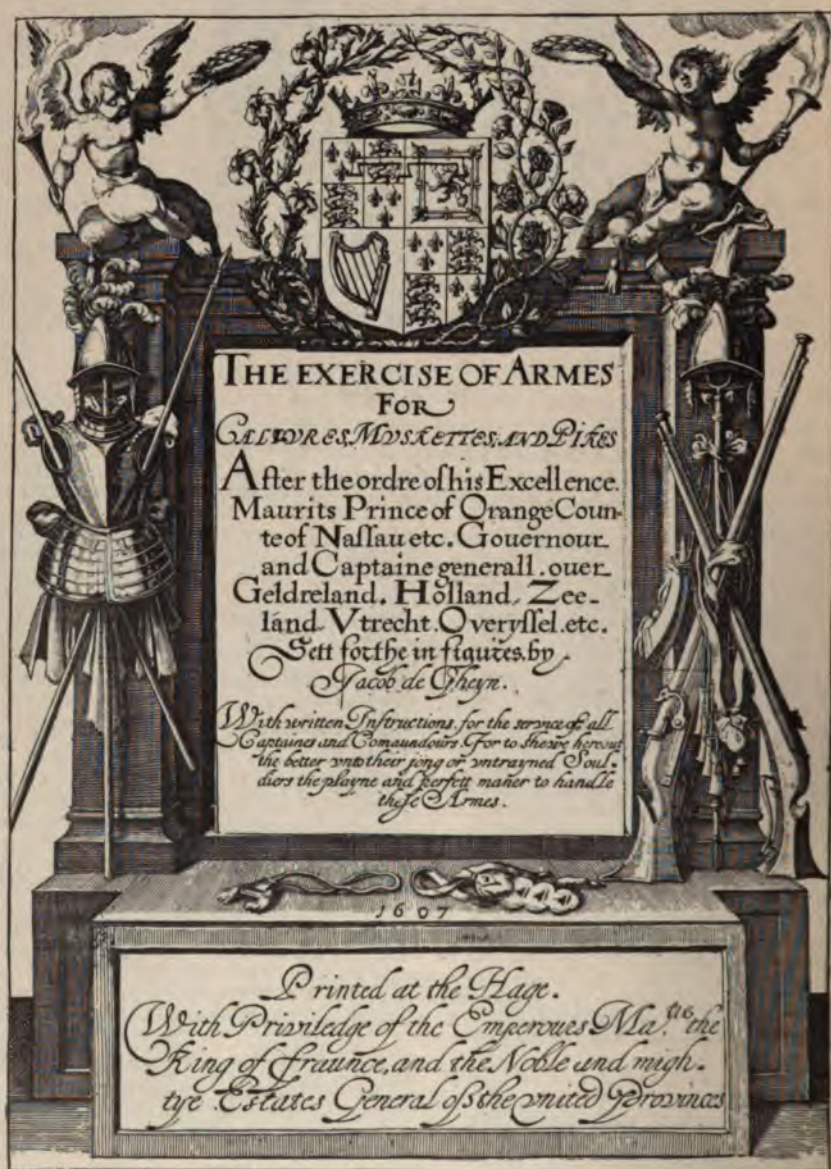 THE EXERCISE OF ARMES
FOR
CALIVRES, MVSKETTES, AND PIKES
After the ordre of his Excellence.
Maurits Prince of Orange Coun-
te of Naſſau etc. Gouernour
and Captaine generall. ouer
Geldreland. Holland. Zee-
land Vtrecht. Overyſſel. etc.
Sett forthe in figures. by
Jacob de Gheyn.
With written Inſtructions. for the service of all
Captaines and Comaundours. For to shewe hereout
the better vnto their jong or vntrayned Soul-
diers the playne and perfett mañer to handle
theſe Armes.
1607
Printed at the Hage.
With Priviledge of the Emperoues Ma.tie the
King of fraunce, and the Noble and migh-
tye Estates General of the vnited Provinces